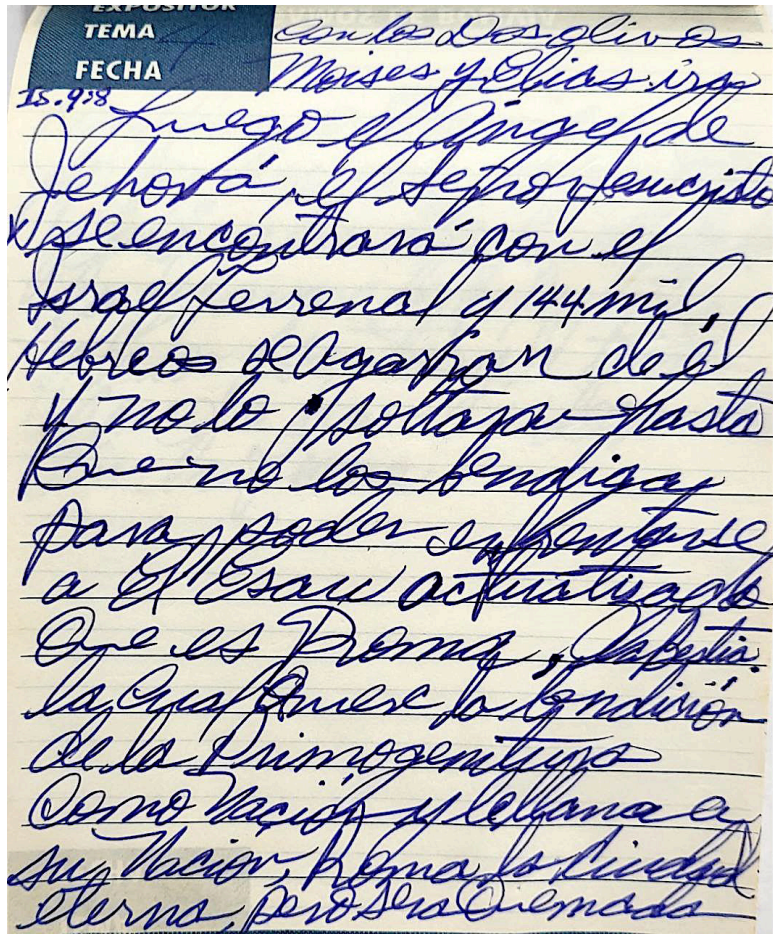 EXPOSITOR
TEMA 4 con los Dos olivos
FECHA Moises y Elias. ira
Is. 9:8 Luego el Ángel de
Jehová, el Señor Jesucristo
x se encontrará con el
Israel terrenal y 144 mil,
Hebreos se agarran de él
y no lo soltaran hasta
Que no los bendiga y
para poder enfrentarse
a El Esau actualizado
Que es Roma, la Bestia.
la cual Quiere la bendición
de la Primogenitura
Como Nación y le llama a
su Nacion, Roma, la Ciudad
eterna, pero sera Quemada